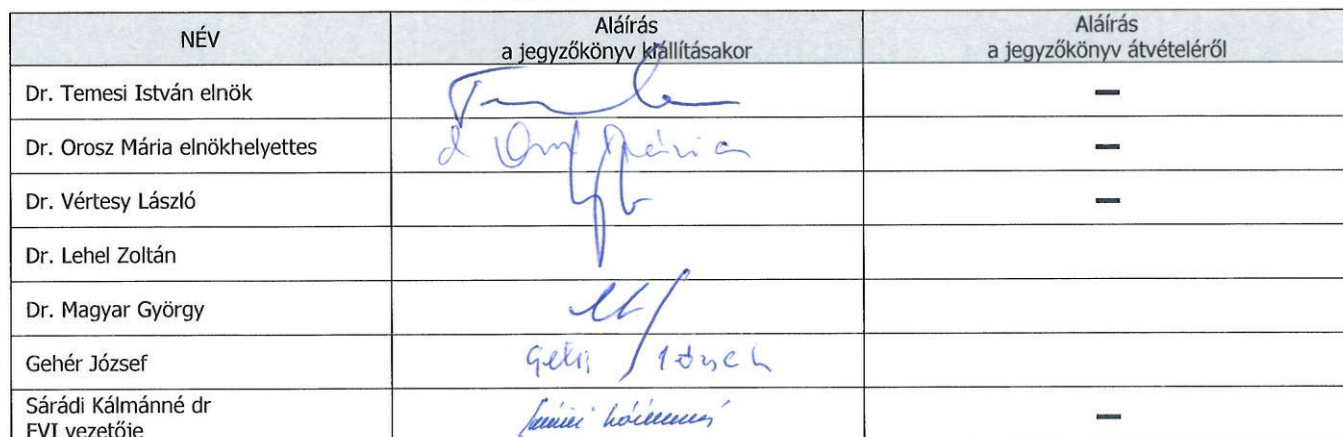 NÉV
Aláírás
a jegyzőkönyv kiállításakor
Aláírás
a jegyzőkönyv átvételéről
Dr. Temesi István elnök
—
Dr. Orosz Mária elnökhelyettes
Mária
—
Dr. Vértesy László
—
Dr. Lehel Zoltán
Dr. Magyar György
Gehér József
Sárádi Kálmánné dr
FVI vezetője
—